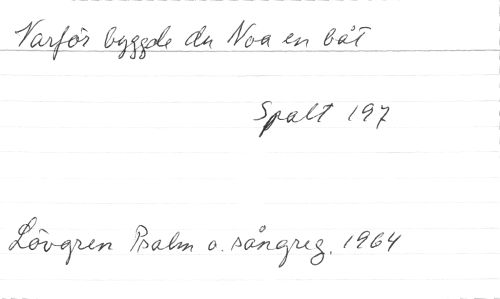 Varför byggde du Noa en båt
Spalt 197
Lövgren Psalm o. sångreg. 1964